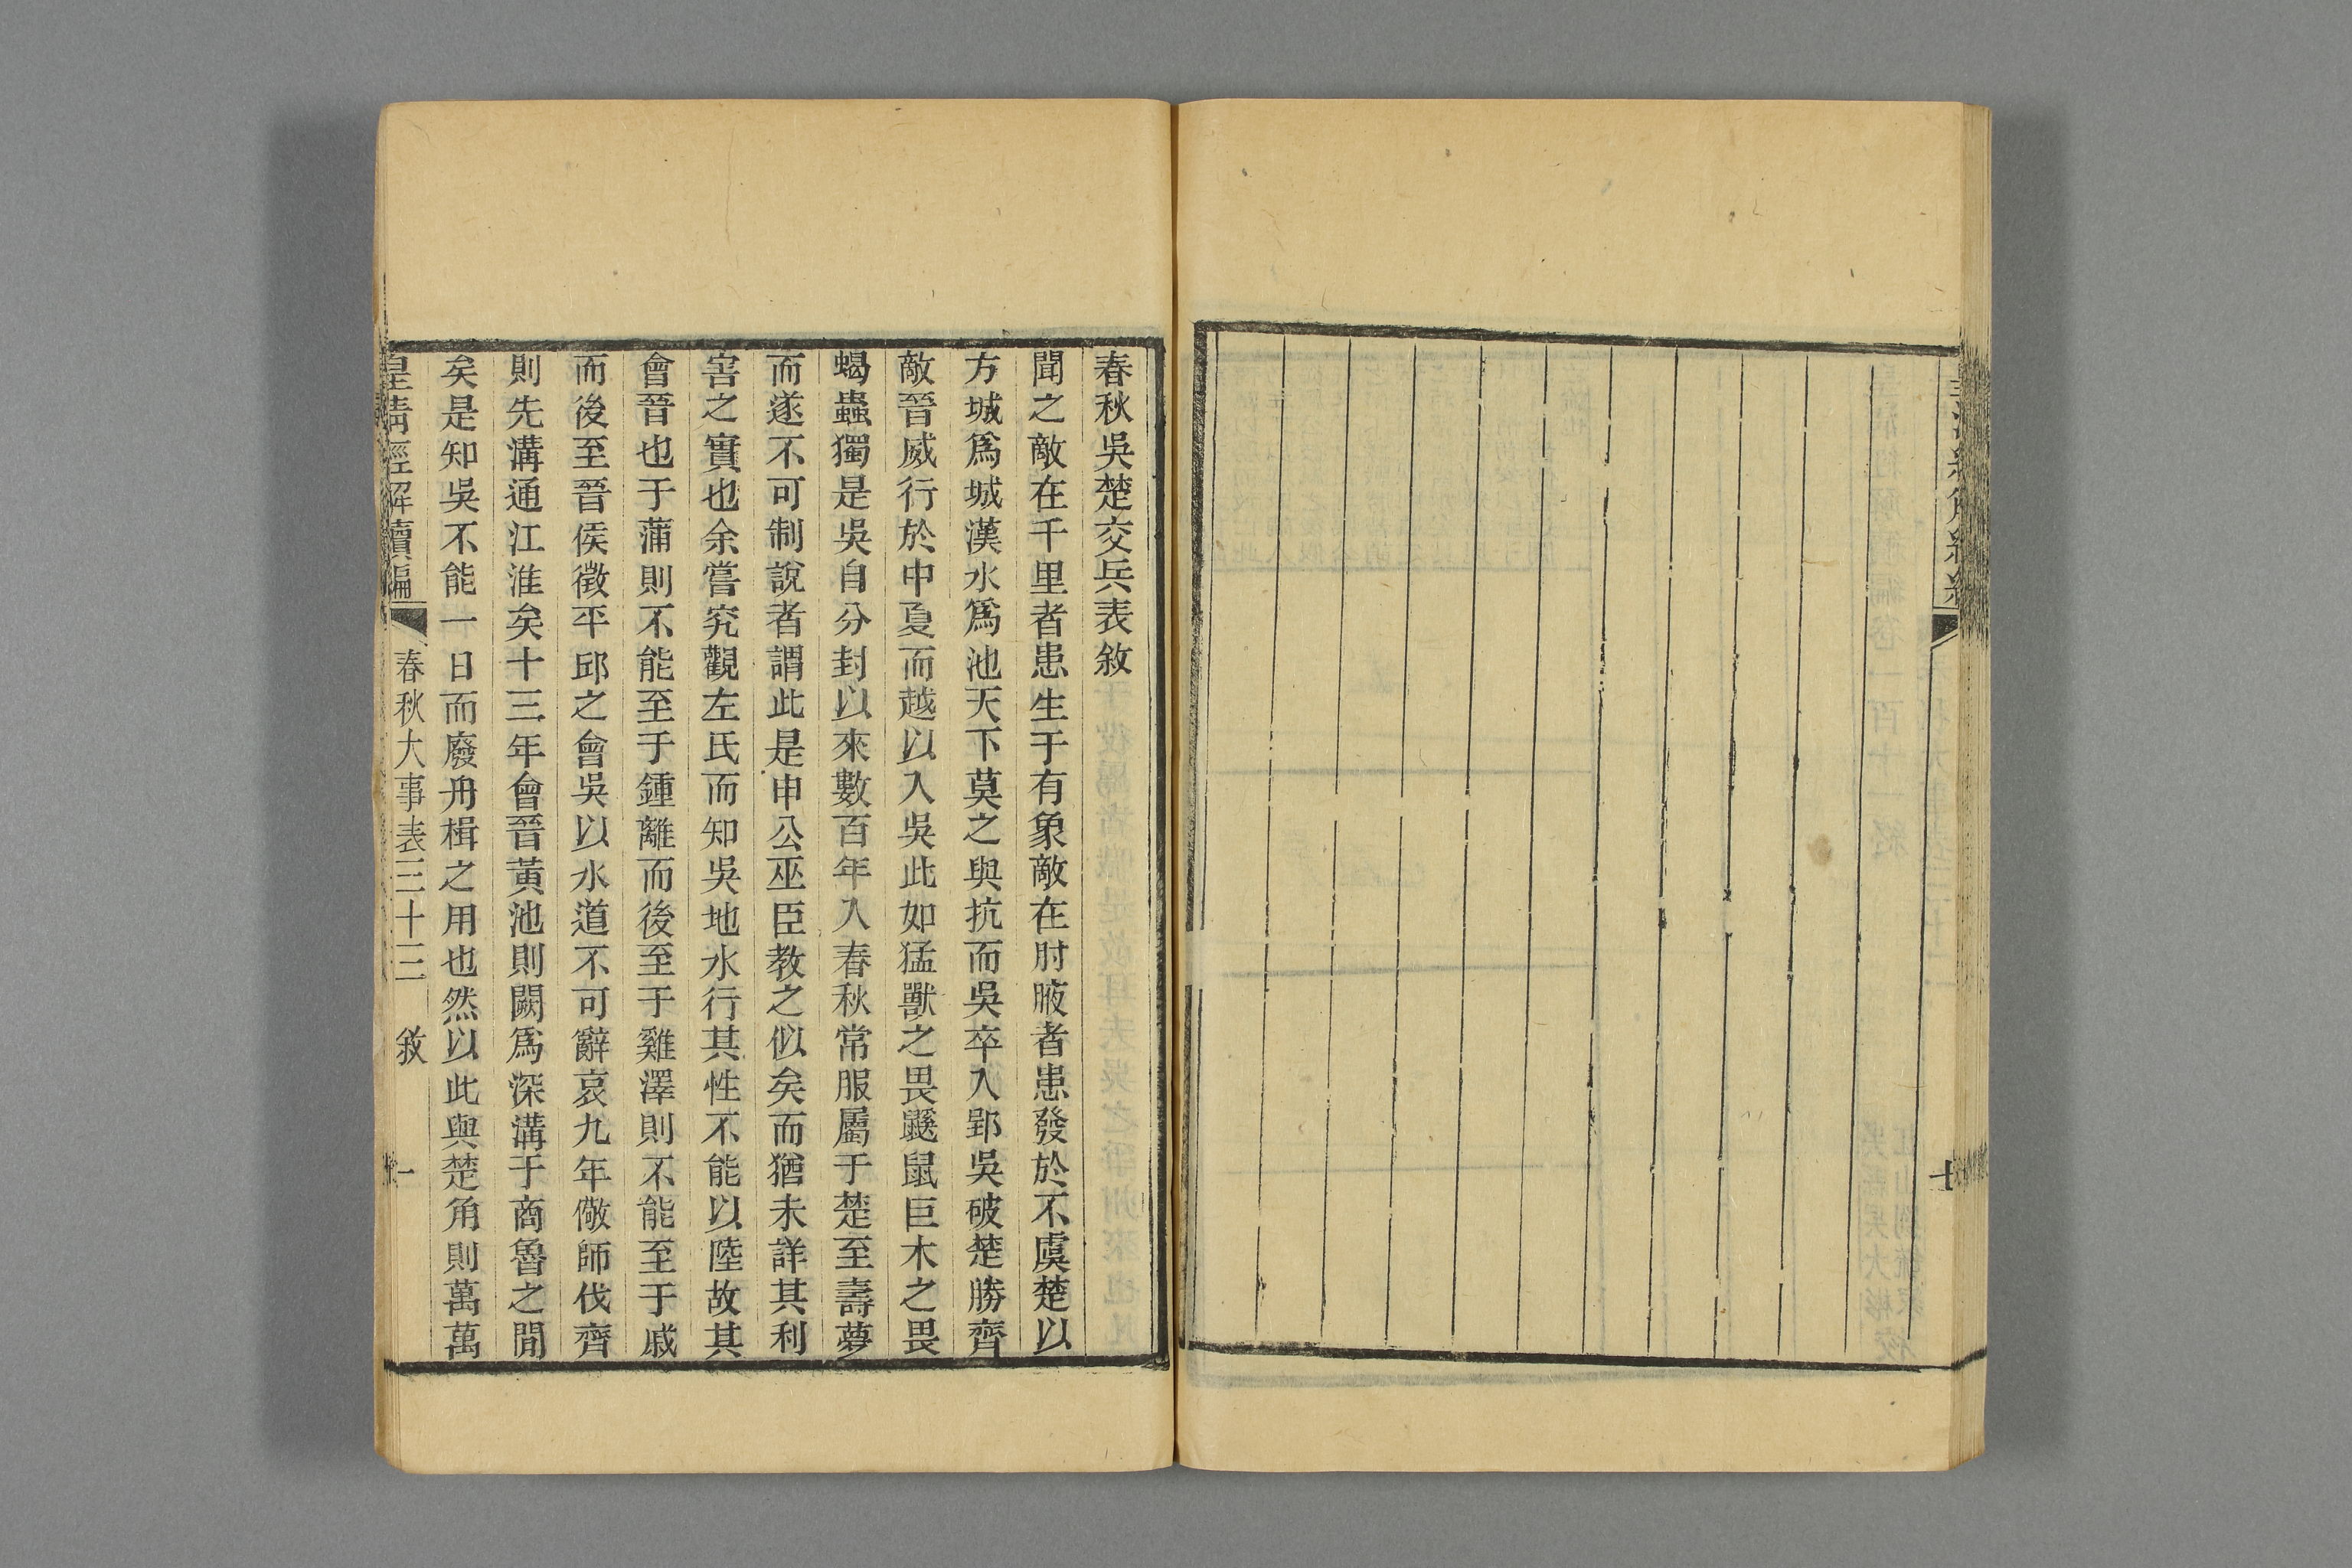 十
春秋吳楚交兵表敘
聞之敵在千里者患生于有象敵在肘腋者患發於不虞楚以
方城爲城漢水爲池天下莫之與抗而吳卒入郢吳破楚勝齊
敵晉威行於中夏而越以入吳此如猛獸之畏鼷鼠巨木之畏
蝎蟲獨是吳自分封以來數百年入春秋常服屬于楚至壽夢
而遂不可制說者謂此是申公巫臣教之似矣而猶未詳其利
害之實也余嘗究觀左氏而知吳地水行其性不能以陸故其
會晉也于蒲則不能至于鍾離而後至于雞澤則不能至于戚
而後至晉侯徵平邱之會吳以水道不可辭哀九年儆師伐齊
則先溝通江淮矣十三年會晉黃池則闕爲深溝于商魯之閒
矣是知吳不能一日而廢舟楫之用也然以此與楚角則萬萬
皇清經解續編 春秋大事表三十三 敘 一